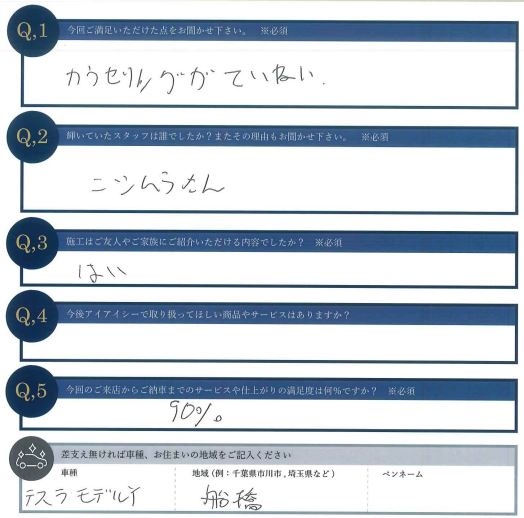 Q,1 今回ご満足いただけた点をお聞かせ下さい。 ※必須
カウセリングがていねい.
Q,2 輝いていたスタッフは誰でしたか？またその理由もお聞かせ下さい。 ※必須
ニシムラさん
Q,3 施工はご友人やご家族にご紹介いただける内容でしたか？ ※必須
はい
Q,4 今後アイアイシーで取り扱ってほしい商品やサービスはありますか？
Q,5 今回のご来店からご納車までのサービスや仕上がりの満足度は何%ですか？ ※必須
90%。
差支え無ければ車種、お住まいの地域をご記入ください
車種 地域（例：千葉県市川市，埼玉県など） ペンネーム
テスラ モデルY 船橋